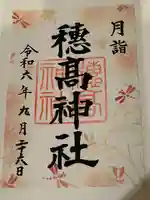 月詣
穂髙神社
令和六年九月二十六日